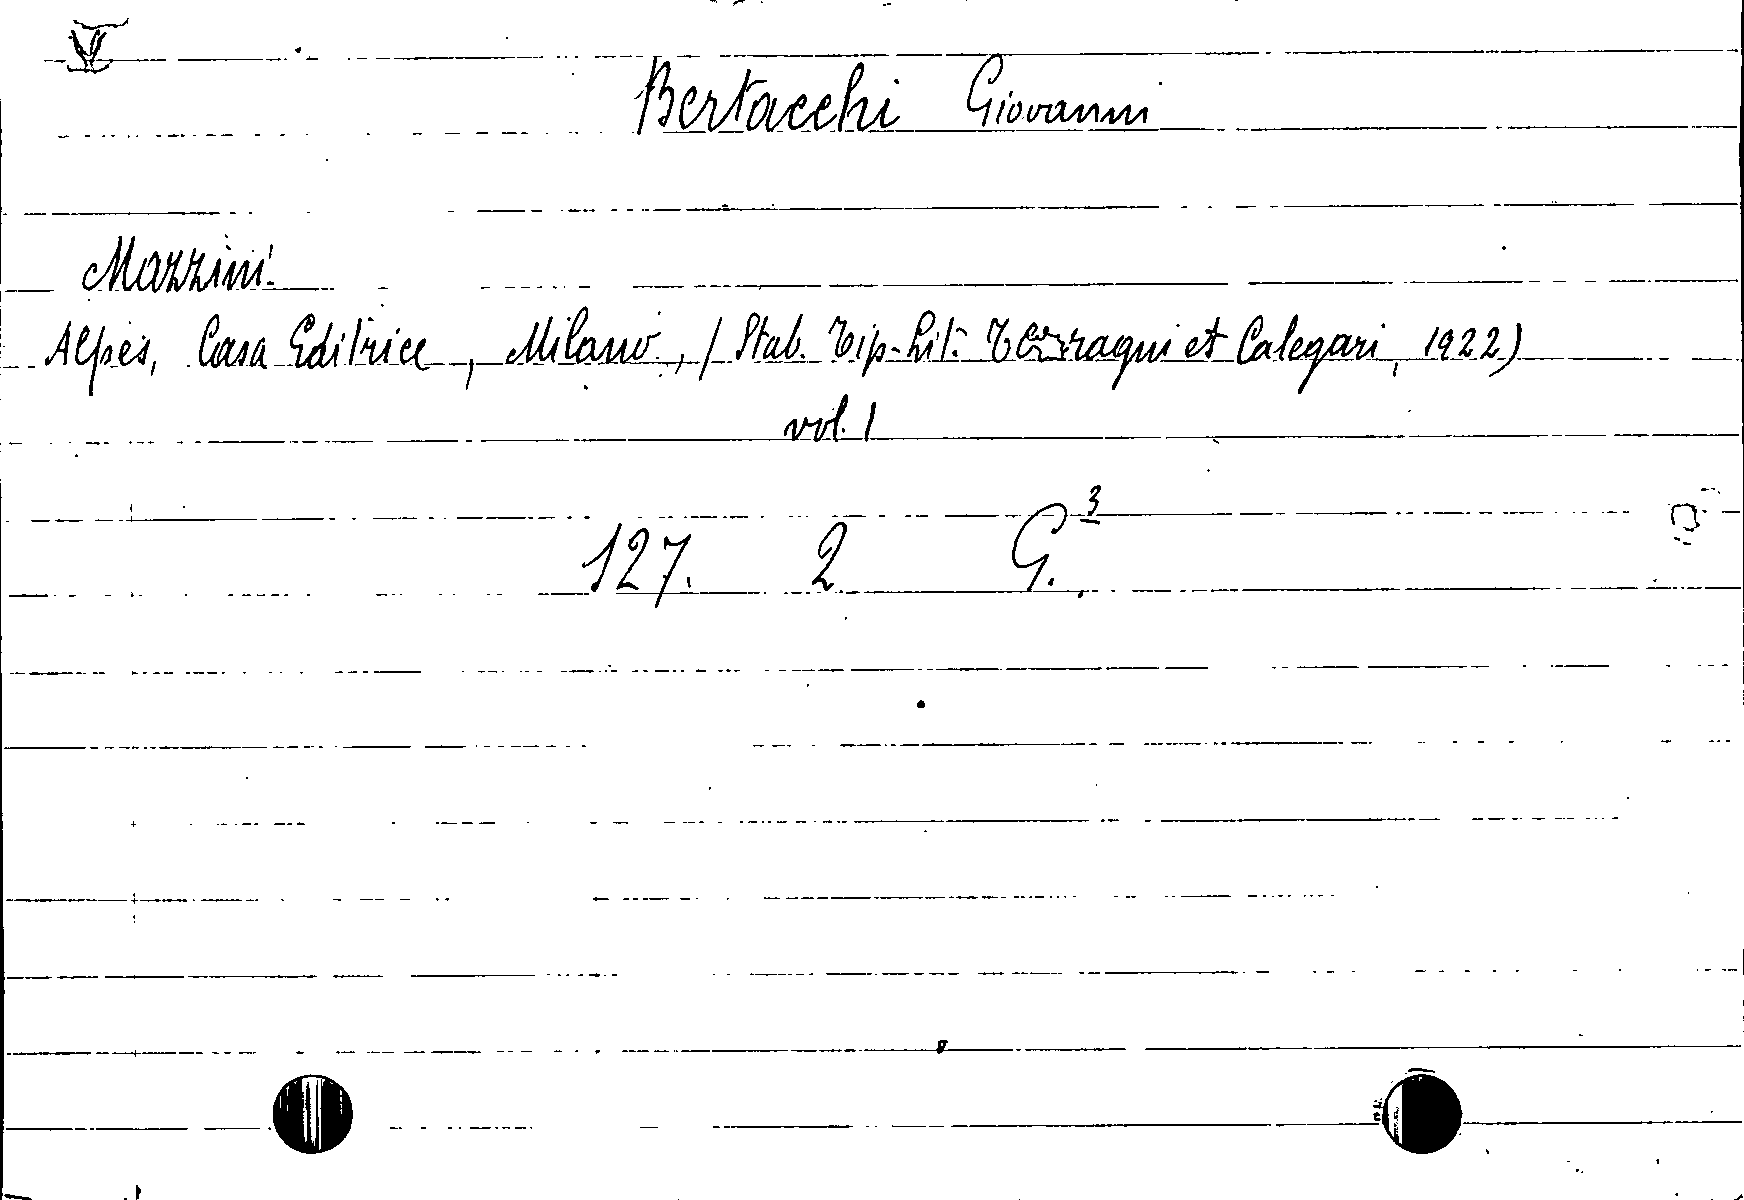 Bertacchi Giovanni
Mazzini.
Alpes, Casa Editrice, Milano, (Stab. Tip-Lit. Terragni et Calegari, 1922)
vol. 1
127. 2 G.3